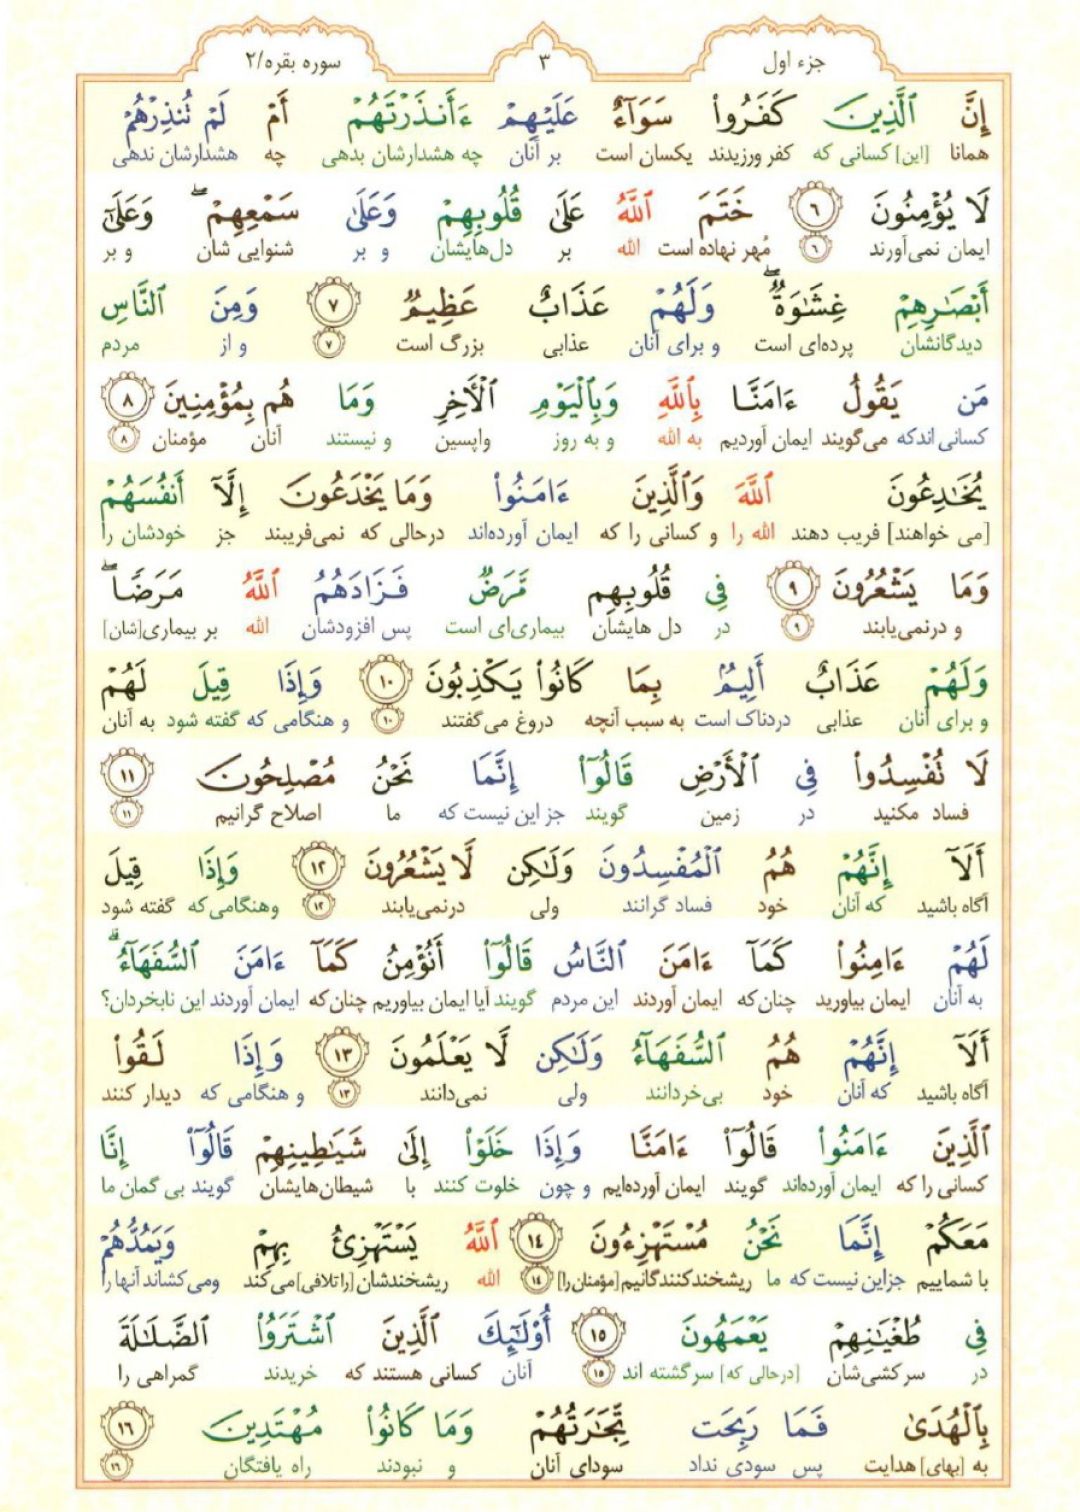 جزء اول
۳
سوره بقره/۲
إِنَّ ٱلَّذِينَ كَفَرُوا۟ سَوَآءٌ عَلَيْهِمْ ءَأَنذَرْتَهُمْ أَمْ لَمْ تُنذِرْهُمْ
همانا [این] کسانی که کفر ورزیدند یکسان است بر آنان چه هشدارشان بدهی چه هشدارشان ندهی
لَا يُؤْمِنُونَ ٦ خَتَمَ ٱللَّهُ عَلَىٰ قُلُوبِهِمْ وَعَلَىٰ سَمْعِهِمْ ۖ وَعَلَىٰٓ
ایمان نمی‌آورند ۶ مُهر نهاده است الله بر دل‌هایشان و بر شنوایی شان و بر
أَبْصَـٰرِهِمْ غِشَـٰوَةٌ ۖ وَلَهُمْ عَذَابٌ عَظِيمٌ ٧ وَمِنَ ٱلنَّاسِ
دیدگانشان پرده‌ای است و برای آنان عذابی بزرگ است ۷ و از مردم
مَن يَقُولُ ءَامَنَّا بِٱللَّهِ وَبِٱلْيَوْمِ ٱلْـَٔاخِرِ وَمَا هُم بِمُؤْمِنِينَ ٨
کسانی اندکه می‌گویند ایمان آوردیم به الله و به روز واپسین و نیستند آنان مؤمنان ۸
يُخَـٰدِعُونَ ٱللَّهَ وَٱلَّذِينَ ءَامَنُوا۟ وَمَا يَخْدَعُونَ إِلَّآ أَنفُسَهُمْ
[می خواهند] فریب دهند الله را و کسانی را که ایمان آورده‌اند درحالی که نمی‌فریبند جز خودشان را
وَمَا يَشْعُرُونَ ٩ فِى قُلُوبِهِم مَّرَضٌ فَزَادَهُمُ ٱللَّهُ مَرَضًا ۖ
و درنمی‌یابند ۹ در دل هایشان بیماری‌ای است پس افزودشان الله بر بیماری[شان]
وَلَهُمْ عَذَابٌ أَلِيمٌۢ بِمَا كَانُوا۟ يَكْذِبُونَ ١٠ وَإِذَا قِيلَ لَهُمْ
و برای آنان عذابی دردناک است به سبب آنچه دروغ می‌گفتند ۱۰ و هنگامی که گفته شود به آنان
لَا تُفْسِدُوا۟ فِى ٱلْأَرْضِ قَالُوٓا۟ إِنَّمَا نَحْنُ مُصْلِحُونَ ١١
فساد مکنید در زمین گویند جز این نیست که ما اصلاح گرانیم ۱۱
أَلَآ إِنَّهُمْ هُمُ ٱلْمُفْسِدُونَ وَلَـٰكِن لَّا يَشْعُرُونَ ١٢ وَإِذَا قِيلَ
آگاه باشید که آنان خود فساد گرانند ولی درنمی‌یابند ۱۲ وهنگامی‌که گفته شود
لَهُمْ ءَامِنُوا۟ كَمَآ ءَامَنَ ٱلنَّاسُ قَالُوٓا۟ أَنُؤْمِنُ كَمَآ ءَامَنَ ٱلسُّفَهَآءُ ۗ
به آنان ایمان بیاورید چنان‌که ایمان آوردند این مردم گویند آیا ایمان بیاوریم چنان‌که ایمان آوردند این نابخردان؟
أَلَآ إِنَّهُمْ هُمُ ٱلسُّفَهَآءُ وَلَـٰكِن لَّا يَعْلَمُونَ ١٣ وَإِذَا لَقُوا۟
آگاه باشید که آنان خود بی‌خردانند ولی نمی‌دانند ۱۳ و هنگامی که دیدار کنند
ٱلَّذِينَ ءَامَنُوا۟ قَالُوٓا۟ ءَامَنَّا وَإِذَا خَلَوْا۟ إِلَىٰ شَيَـٰطِينِهِمْ قَالُوٓا۟ إِنَّا
کسانی را که ایمان آورده‌اند گویند ایمان آورده‌ایم و چون خلوت کنند با شیطان‌هایشان گویند بی گمان ما
مَعَكُمْ إِنَّمَا نَحْنُ مُسْتَهْزِءُونَ ١٤ ٱللَّهُ يَسْتَهْزِئُ بِهِمْ وَيَمُدُّهُمْ
با شماییم جزاین نیست که ما ریشخندکنندگانیم[مؤمنان را] ۱۴ الله ریشخندشان [راتلافی] می‌کند ومی‌کشاند آنها را
فِى طُغْيَـٰنِهِمْ يَعْمَهُونَ ١٥ أُو۟لَـٰٓئِكَ ٱلَّذِينَ ٱشْتَرَوُا۟ ٱلضَّلَـٰلَةَ
در سرکشی‌شان [درحالی که] سرگشته اند ۱۵ آنان کسانی هستند که خریدند گمراهی را
بِٱلْهُدَىٰ فَمَا رَبِحَت تِّجَـٰرَتُهُمْ وَمَا كَانُوا۟ مُهْتَدِينَ ١٦
به [بهای] هدایت پس سودی نداد سودای آنان و نبودند راه یافتگان ۱۶